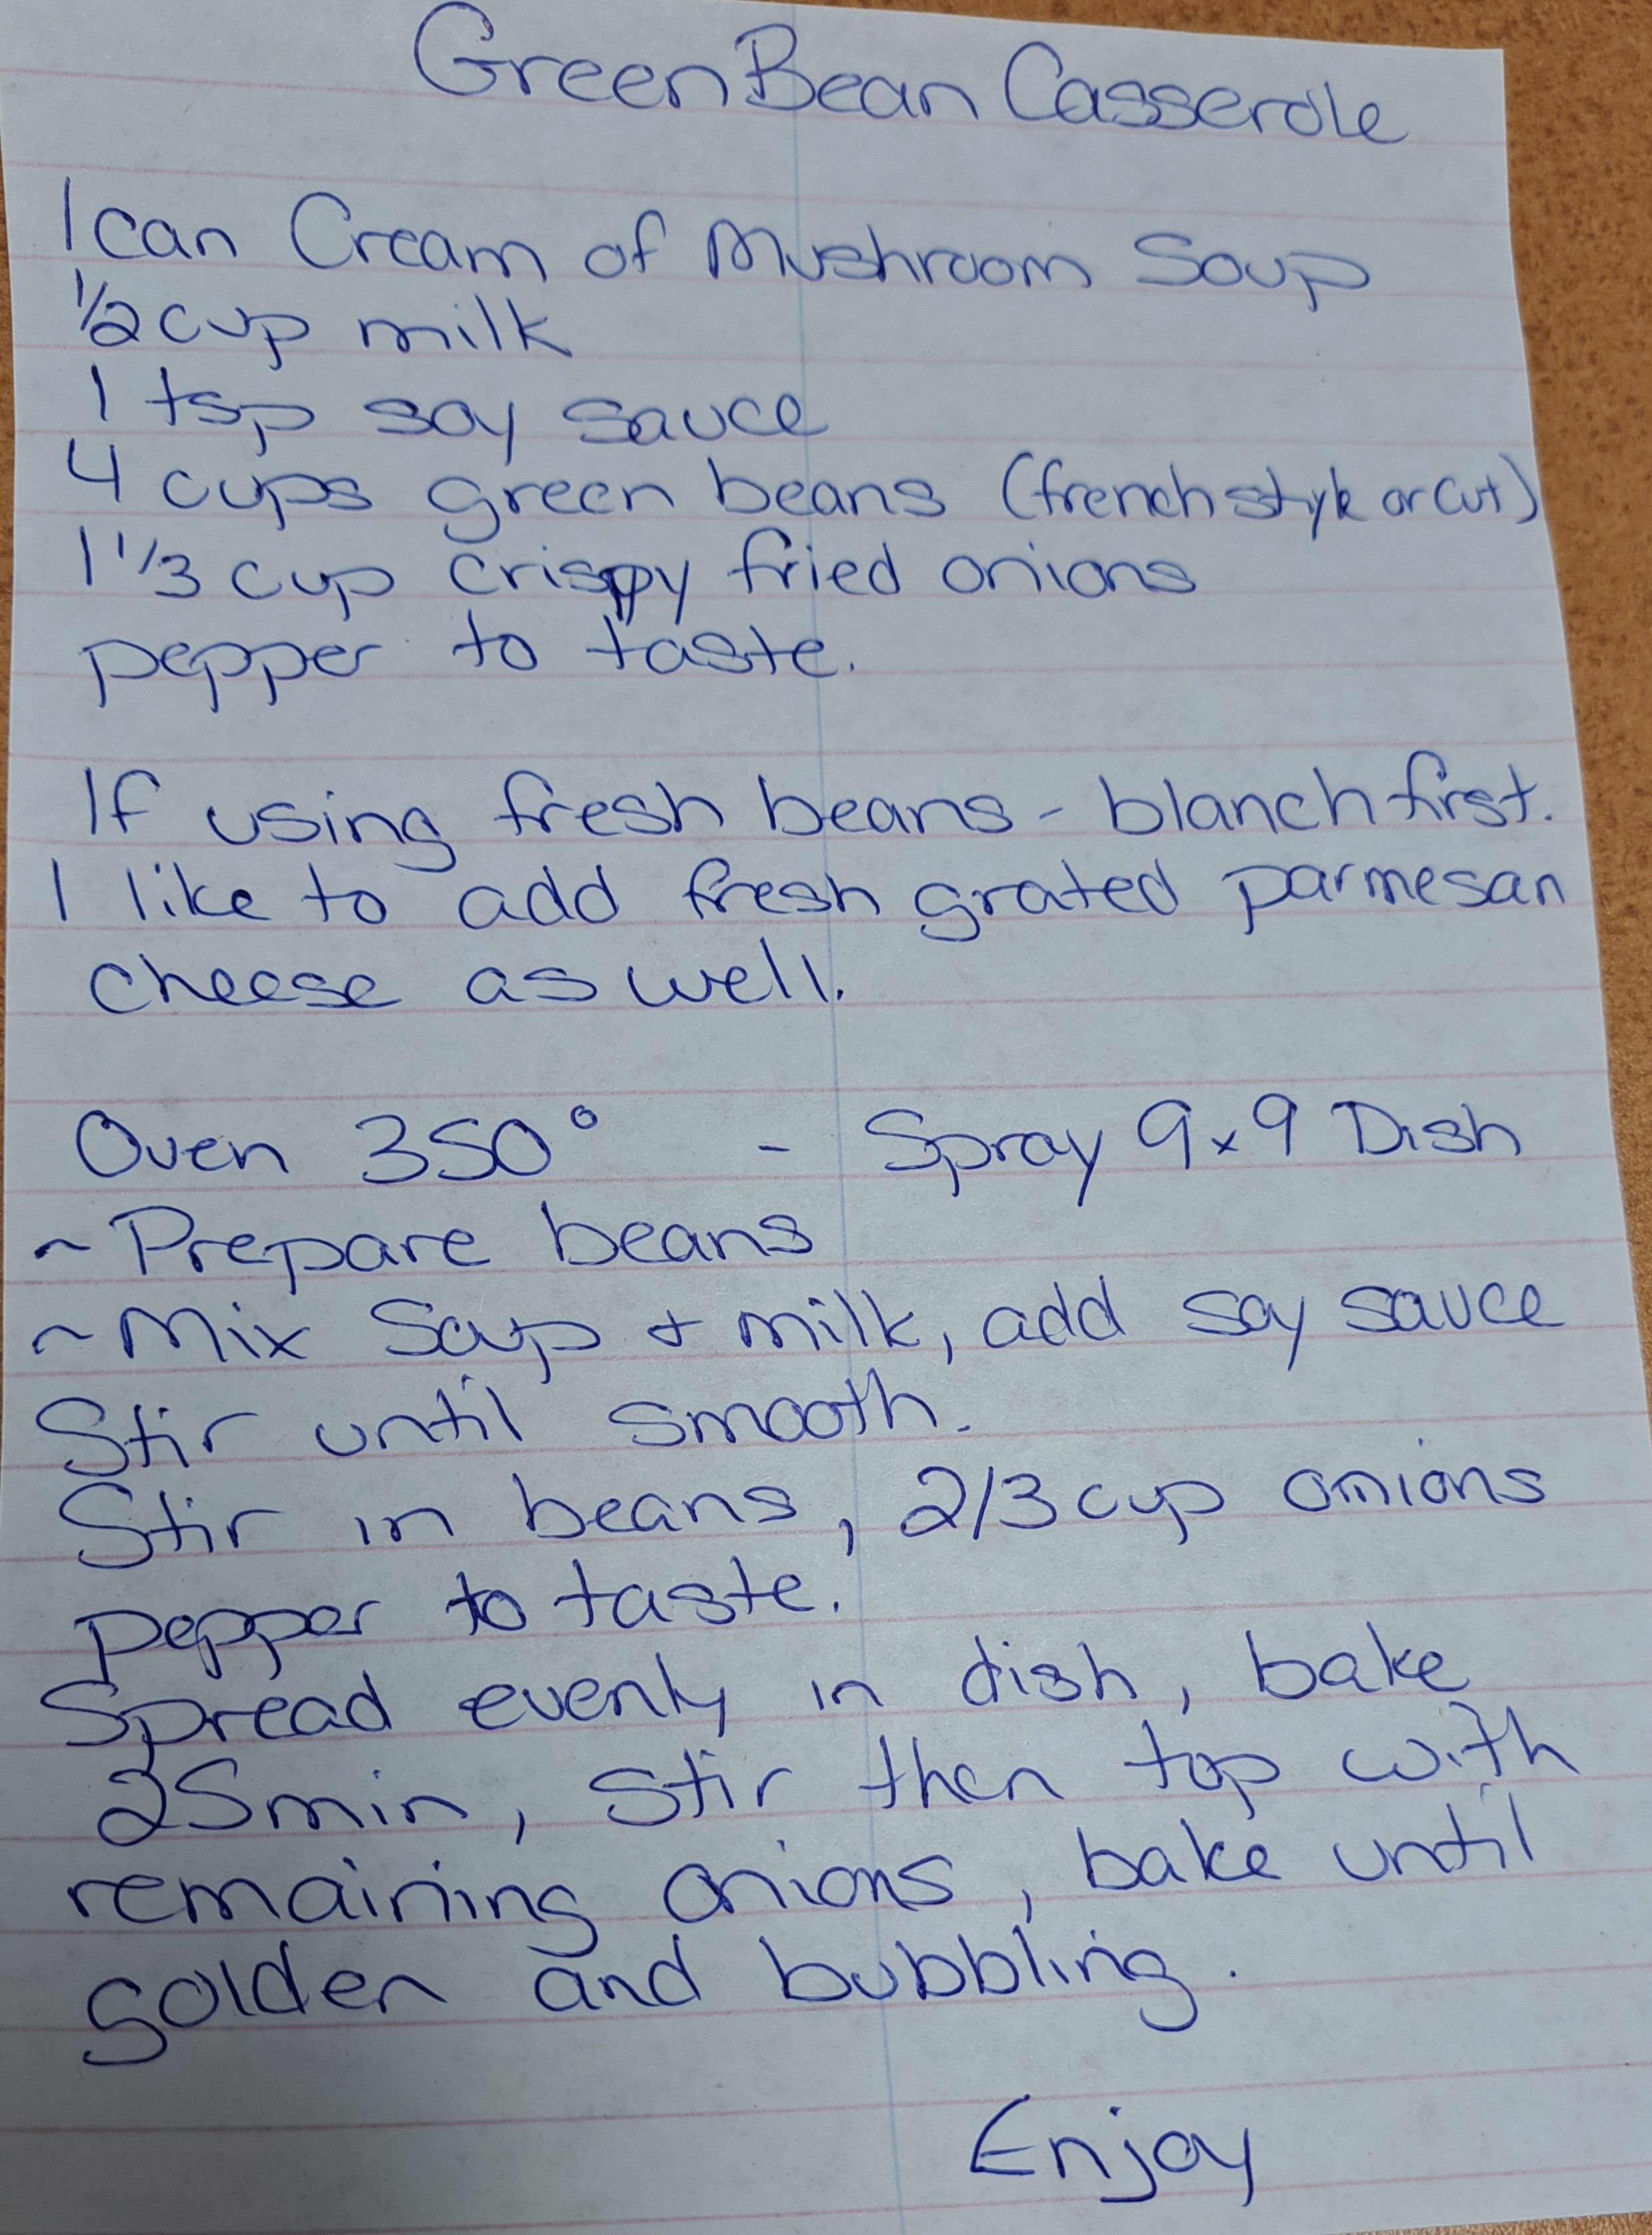 Green Bean Casserole
1 can Cream of Mushroom Soup
1/2 cup milk
1 tsp soy sauce
4 cups green beans (french style or cut)
1 1/3 cup crispy fried onions
pepper to taste.
If using fresh beans - blanch first.
I like to add fresh grated parmesan
cheese as well.
Oven 350° - Spray 9x9 Dish
~ Prepare beans
~ Mix Soup + milk, add soy sauce
Stir until smooth.
Stir in beans, 2/3 cup onions
pepper to taste.
Spread evenly in dish, bake
25min, Stir then top with
remaining onions, bake until
golden and bubbling.
Enjoy